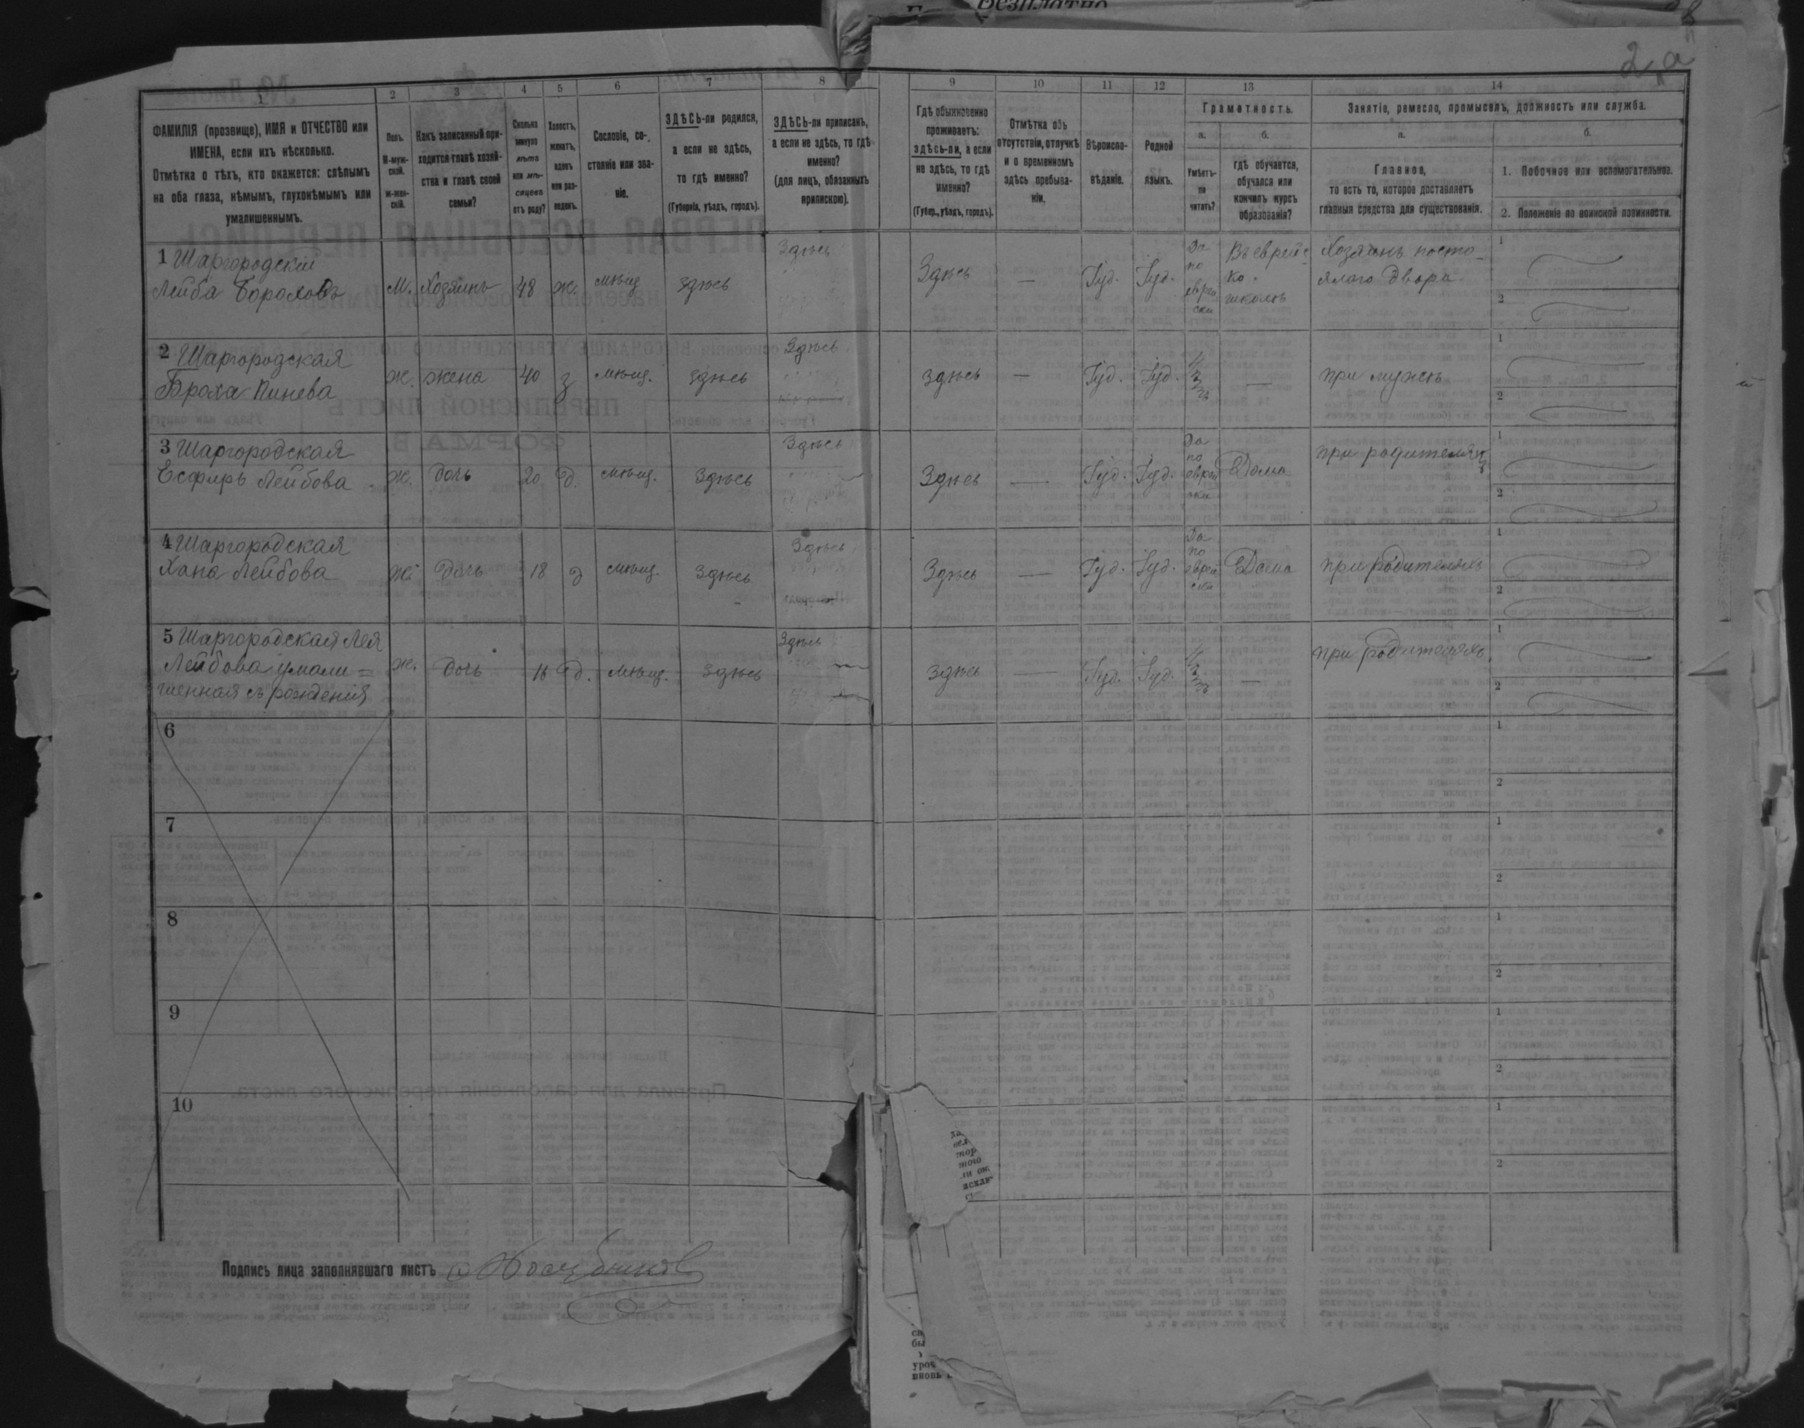 Безплатно
2 а
1 2 3 4 5 6 7 8 9 10 11 12 13 14
ФАМИЛІЯ (прозвище), ИМЯ и ОТЧЕСТВО или
ИМЕНА, если ихъ нѣсколько.
Отмѣтка о тѣхъ, кто окажется: слѣпымъ
на оба глаза, нѣмымъ, глухонѣмымъ или
умалишеннымъ.
Полъ.
М-муж-
ской.
Ж-жен-
скій.
Какъ записанный при-
ходится главѣ хозяй-
ства и главѣ своей
семьи?
Сколько
минуло
лѣтъ
или мѣ-
сяцевъ
отъ роду?
Холостъ,
женатъ,
вдовъ
или раз-
веденъ.
Сословіе, со-
стояніе или зва-
ніе.
ЗДѢСЬ-ли родился,
а если не здѣсь,
то гдѣ именно?
(Губернія, уѣздъ, городъ).
ЗДѢСЬ-ли приписанъ,
а если не здѣсь, то гдѣ
именно?
(для лицъ, обязанныхъ
припискою).
Гдѣ обыкновенно
проживаетъ:
здѣсь-ли, а если
не здѣсь, то гдѣ
именно?
(Губер., уѣздъ, городъ).
Отмѣтка объ
отсутствіи, отлучкѣ
и о временномъ
здѣсь пребыва-
ніи.
Вѣроиспо-
вѣданіе.
Родной
языкъ.
Грамотность.
а.
Умѣетъ-
ли
читать?
б.
гдѣ обучается,
обучался или
кончилъ курсъ
образованія?
Занятіе, ремесло, промыселъ, должность или служба.
а.
Главное,
то есть то, которое доставляетъ
главныя средства для существованія.
б.
1. Побочное или вспомогательное.
2. Положеніе по воинской повинности.
1 Шаргородскій
Лейба Бороховъ
М. Хозяинъ 48 ж. мѣщ. здѣсь Здѣсь
Здѣсь — Іуд. Іуд.
Да
по
еврей
ски
Въ еврейс-
ко.
школѣ
Хозяинъ посто-
ялаго двора
1
2
2 Шаргородская
Броха Пинева
ж. жена 40 з мѣщ. здѣсь Здѣсь
здѣсь — Іуд. Іуд. — при мужѣ
1
2
3 Шаргородская
Есфирь Лейбова
ж. дочь 20 д. мѣщ. Здѣсь Здѣсь
Здѣсь — Іуд. Іуд.
Да
по
еврей
ски
Дома
при родителяхъ
1
2
4 Шаргородская
Хана Лейбова
ж. дочь 18 д мѣщ. Здѣсь Здѣсь
Здѣсь — Іуд. Іуд.
Да
по
еврей
ски
Дома
при родителяхъ
1
2
5 Шаргородская Лея
Лейбова умали=
шенная съ рожденія
ж. дочь 16 д. мѣщ. Здѣсь Здѣсь
здѣсь — Іуд. Іуд. — при родителяхъ
1
2
6
1
2
7
1
2
8
1
2
9
1
2
10
1
2
Подпись лица заполнявшаго листъ